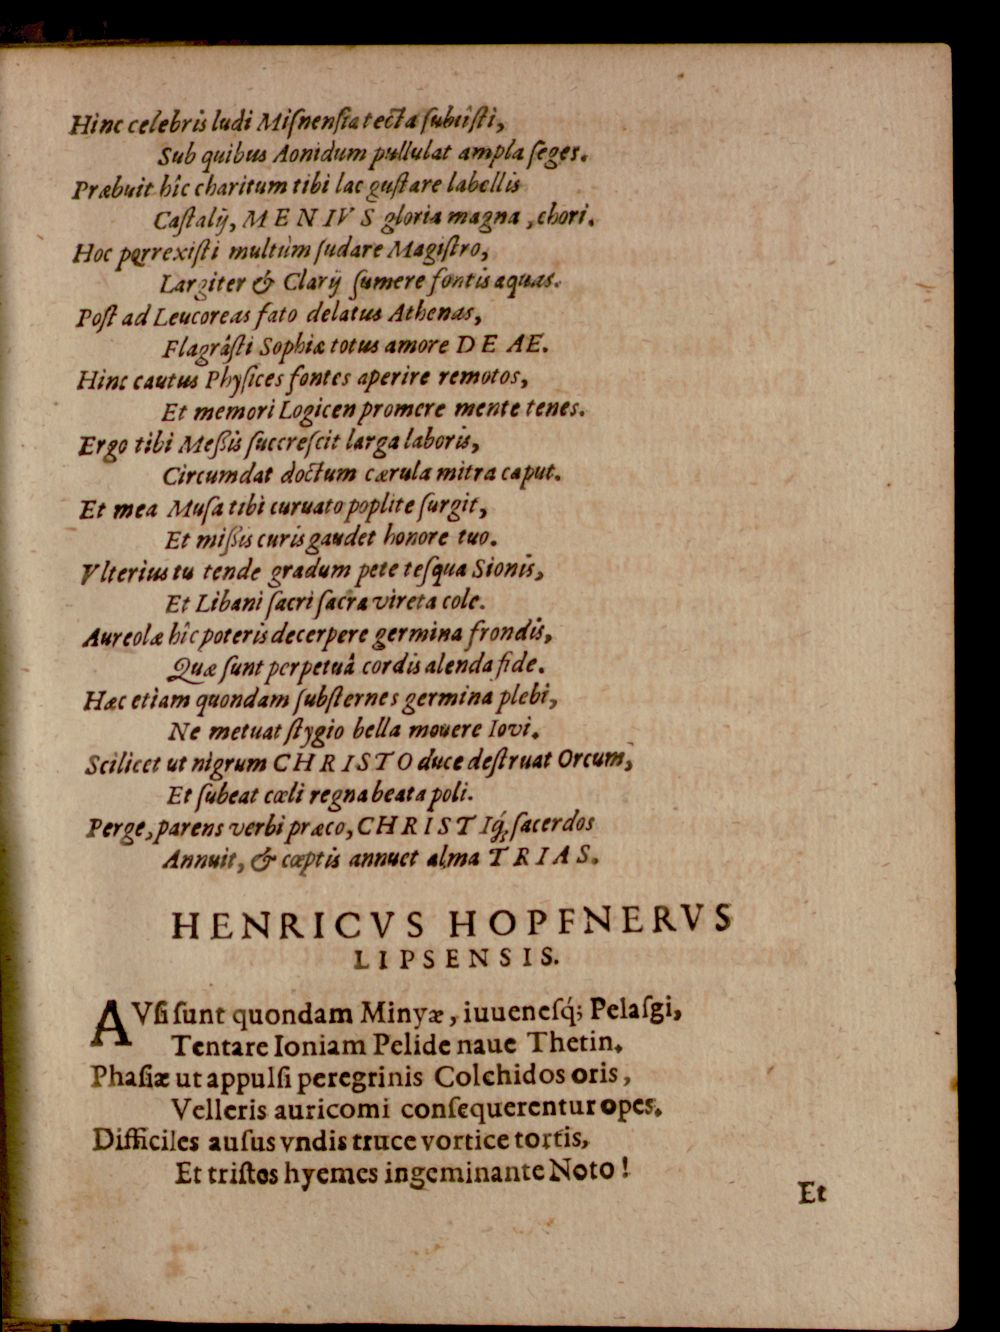 Hinc celebris ludi Miſnenſia tecta ſubiiſti,
Sub quibus Aonidum pullulat ampla ſeges.
Præbuit hîc charitum tibi lac guſtare labellis
Caſtalij, MENIVS gloria magna, chori.
Hoc porrexiſti multùm ſudare Magiſtro,
Largiter & Clarij ſumere fontis aquas.
Poſt ad Leucoreas fato delatus Athenas,
Flagrâſti Sophiæ totus amore DEAE.
Hinc cautus Phyſices fontes aperire remotos,
Et memori Logicen promere mente tenes.
Ergo tibi Meßis ſuccreſcit larga laboris,
Circumdat doctum cærula mitra caput.
Et mea Muſa tibi curuato poplite ſurgit,
Et mißis curis gaudet honore tuo.
Vlterius tu tende gradum pete teſqua Sionis,
Et Libani ſacri ſacra vireta cole.
Aureolæ hîc poteris decerpere germina frondis,
Quæ ſunt perpetuâ cordis alenda fide.
Hæc etiam quondam ſubſternes germina plebi,
Ne metuat ſtygio bella mouere Iovi.
Scilicet ut nigrum CHRISTO duce deſtruat Orcum,
Et ſubeat cœli regna beata poli.
Perge, parens verbi præco, CHRISTIq́; ſacerdos
Annuit, & cœptis annuet alma TRIAS.
HENRICVS HOPFNERVS
LIPSENSIS.
AVſi ſunt quondam Minyæ, iuueneſq́; Pelaſgi,
Tentare Ioniam Pelide naue Thetin.
Phaſiæ ut appulſi peregrinis Colchidos oris,
Velleris auricomi conſequerentur opes.
Difficiles auſus vndis truce vortice tortis,
Et triſtes hyemes ingeminante Noto!
Et